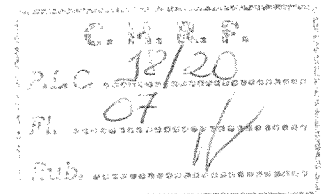 C. M. R. P.
P.L.C 18/20
Fl. 07
Rub.